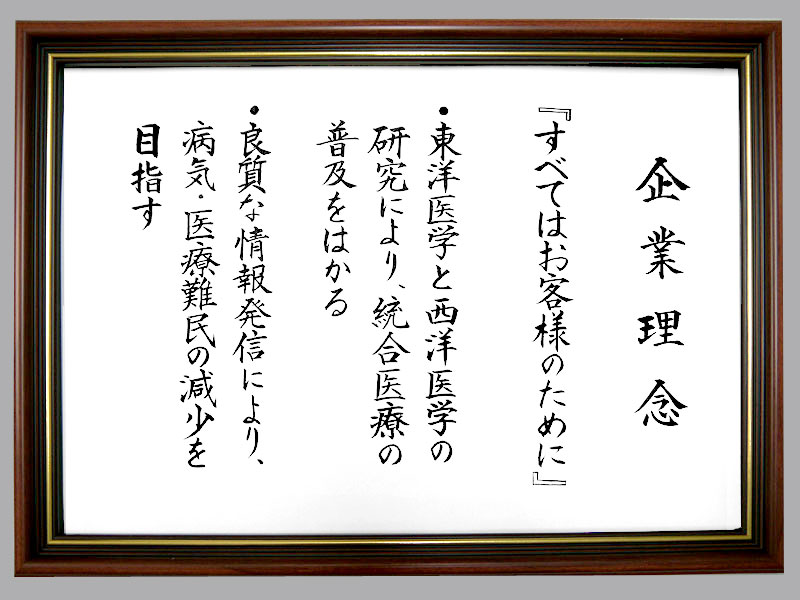 企業理念
『すべてはお客様のために』
・東洋医学と西洋医学の
研究により、統合医療の
普及をはかる
・良質な情報発信により、
病気・医療難民の減少を
目指す